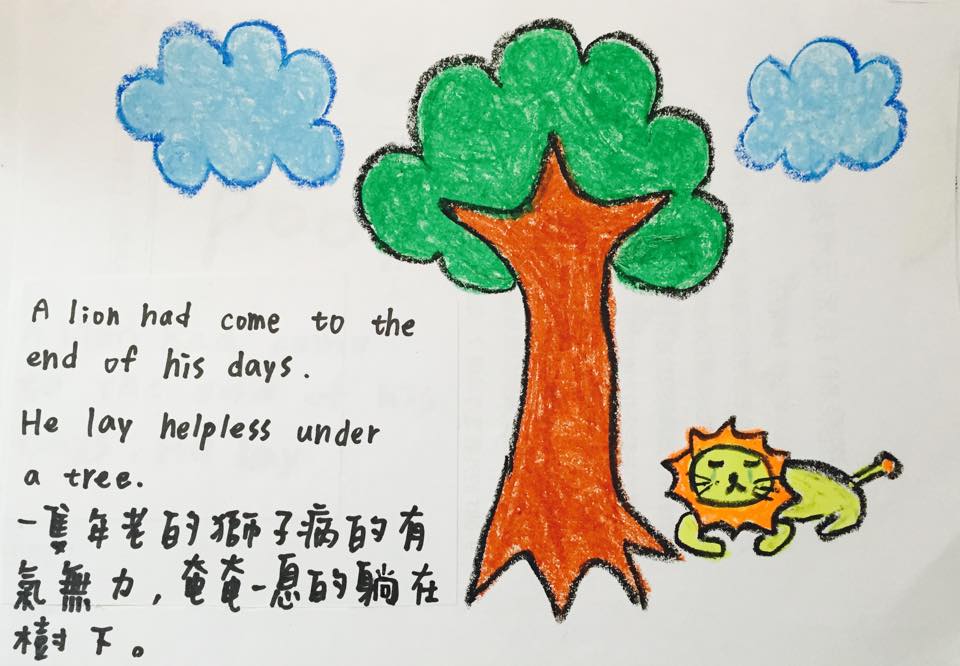 A lion had come to the
end of his days.
He lay helpless under
a tree.
一隻年老的獅子病的有
氣無力,奄奄一息的躺在
樹下。